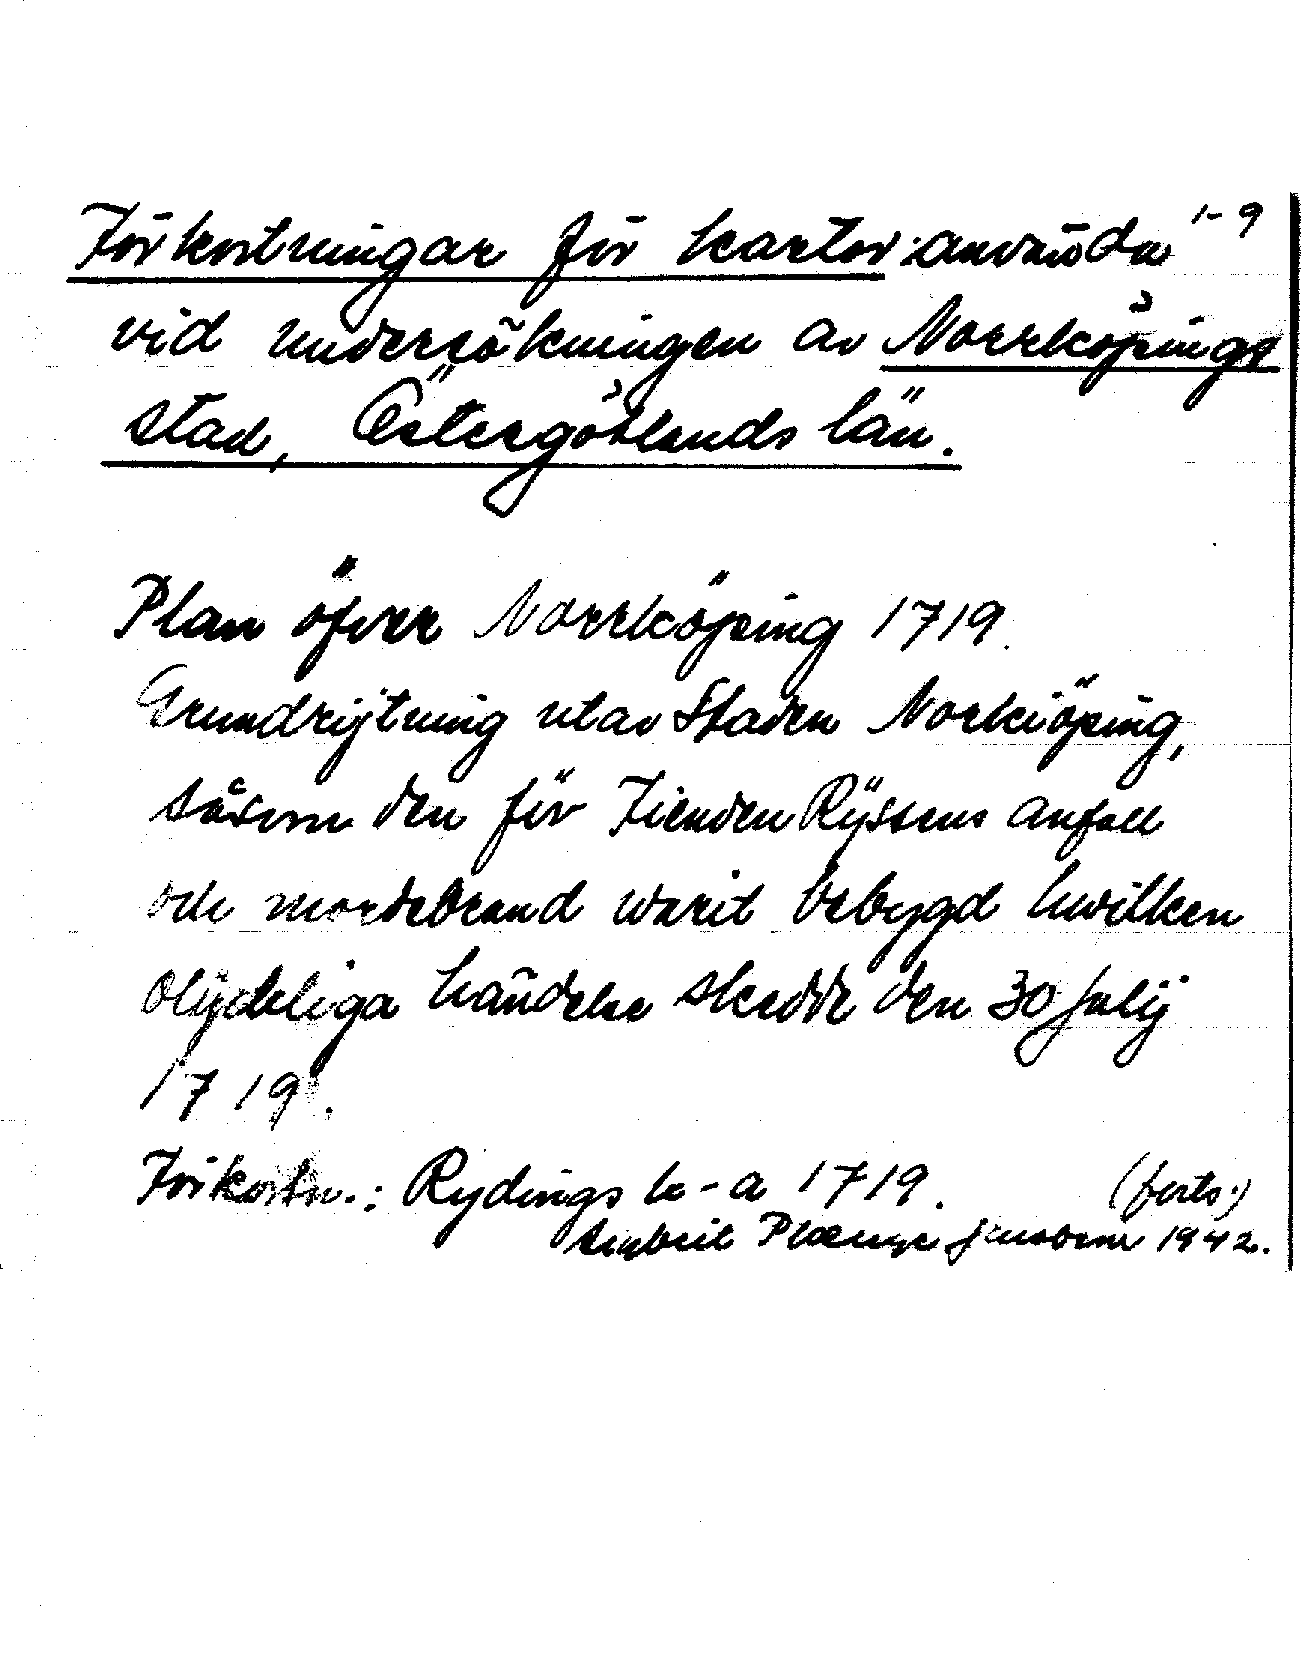 1-9
Förkortningar för kartor använda
vid undersökningen av Norrköpings
stad, Östergötlands län.
Plan öfver Norrköping 1719.
Grundrijtning utav Staden Norkiöping,
såsom den för Fienden Rÿssens anfall
och mordebrand warit bebygd hwilken
olyckeliga händelse skedde den 30 Julij
1719.
Förkortn.: Rydings k-a 1719. (forts.)
1942.